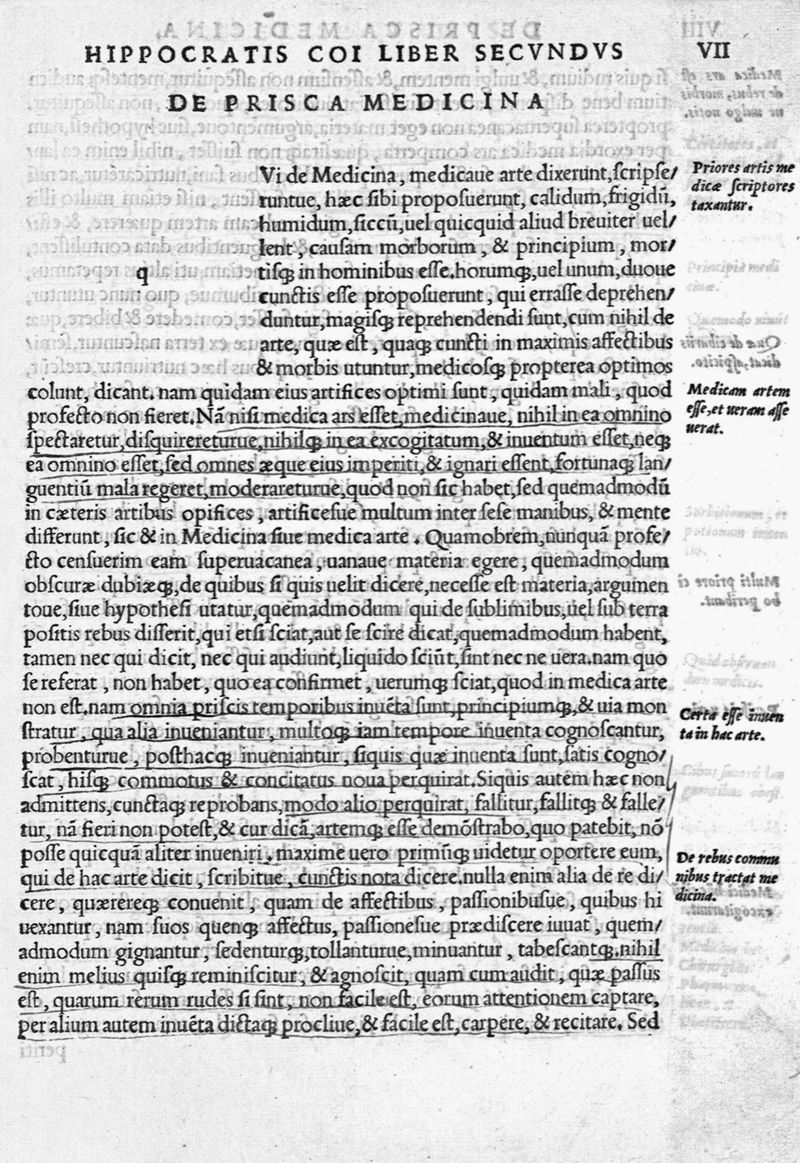 HIPPOCRATIS COI LIBER SECVNDVS VII
DE PRISCA MEDICINA
Vi de Medicina, medicaue arte dixerunt, scripse/
runtue, hæc sibi proposuerunt, calidum, frigidũ,
humidum, siccũ, uel quicquid aliud breuiter uel/
lent, causam morborum, & principium, mor/
q
tisq; in hominibus esse. horumq;, uel unum, duoue
cunctis esse proposuerunt, qui errasse deprehen/
duntur, magisq; reprehendendi sunt, cum nihil de
arte, quæ est, quaq; cuncti in maximis affectibus
& morbis utuntur, medicosq; propterea optimos
colunt, dicant. nam quidam eius artifices optimi sunt, quidam mali, quod
profecto non fieret. Nã nisi medica ars esset, medicinaue, nihil in ea omnino
spectaretur, disquirereturue, nihilq; in ea excogitatum, & inuentum esset, neq;
ea omnino esset, sed omnes æque eius imperiti, & ignari essent, fortunaq; lan/
guentiũ mala regeret, moderareturue, quod non sic habet, sed quemadmodũ
in cæteris artibus opifices, artificesue multum inter sese manibus, & mente
differunt, sic & in Medicina siue medica arte. Quamobrem, nunquã profe/
cto censuerim eam superuacanea, uanaue materia egere, quemadmodum
obscuræ dubiæq;, de quibus si quis uelit dicere, necesse est materia, argumen
toue, siue hypothesi utatur, quemadmodum qui de sublimibus, uel sub terra
positis rebus disserit, qui etsi sciat, aut se scire dicat, quemadmodum habent,
tamen nec qui dicit, nec qui audiunt, liquido sciũt, sint nec ne uera. nam quo
se referat, non habet, quo ea confirmet, uerumq; sciat, quod in medica arte
non est, nam omnia priscis temporibus inuẽta sunt, principiumq;, & uia mon
stratur, qua alia inueniantur, multoq; iam tempore inuenta cognoscantur,
probenturue, posthacq; inueniantur, siquis quæ inuenta sunt, satis cogno/
scat, hisq; commotus & concitatus noua perquirat. Siquis autem hæc non
admittens, cunctaq; reprobans, modo alio perquirat, fallitur, fallitq; & falle/
tur, nã fieri non potest, & cur dicã, artemq; esse demõstrabo, quo patebit, nõ
posse quicquã aliter inueniri. maxime uero primũq; uidetur oportere eum,
qui de hac arte dicit, scribitue, cunctis nota dicere. nulla enim alia de re di/
cere, quærereq; conuenit, quam de affectibus, passionibusue, quibus hi
uexantur, nam suos quenq; affectus, passionesue prædiscere iuuat, quem/
admodum gignantur, sedenturq;, tollanturue, minuantur, tabescantq;. nihil
enim melius quisq; reminiscitur, & agnoscit, quam cum audit, quæ passus
est, quarum rerum rudes si sint, non facile est, eorum attentionem captare,
per alium autem inuẽta dictaq; procliue, & facile est, carpere, & recitare. Sed
Priores artis me
dicæ scriptores
taxantur.
Medicam artem
esse, et ueram asse
uerat.
Certa esse inuen
ta in hac arte.
De rebus commu
nibus tractat me
dicina.